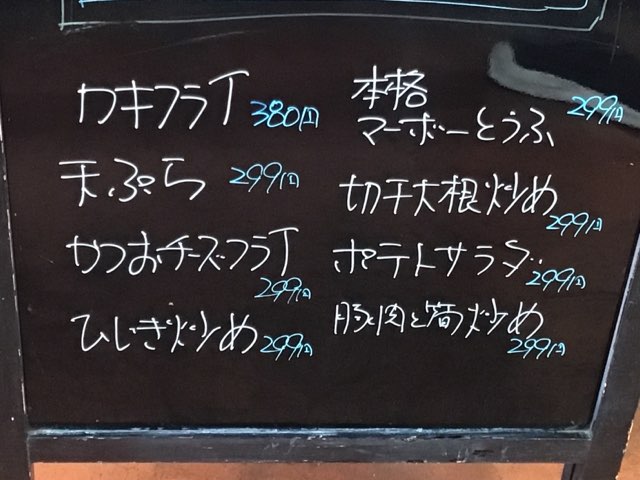 カキフライ 380円
天ぷら 299円
かつおチーズフライ
299円
ひじき炒め 299円
本格
マーボーとうふ 299円
切干大根炒め
299円
ポテトサラダ 299円
豚肉と筍炒め
299円